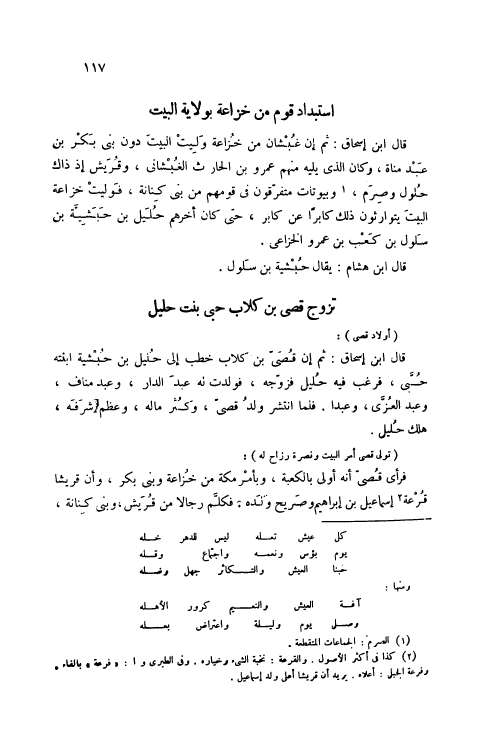 ١١٧
استبداد قوم من خزاعة بولاية البيت
قال ابن إسحاق : ثم إن غُبْشان من خُزاعة وَلِيتْ البيتَ دون بنى بَكْر بن
عَبْد مناة ، وكان الذى يليه منهم عمرو بن الحارث الغُبْشانى ، وقُرَيش إذ ذاك
حُلول وصِرَم ، ١ وبيوتات متفرّقون فى قومهم من بنى كِنانة ، فوليتْ خزاعة
البيتَ يتوارثون ذلك كابرًا عن كابر ، حتى كان آخرهم حُلَيل بن حَبَشيَّة بن
سَلول بن كَعْب بن عمرو الخزاعى .
قال ابن هشام : يقال حُبْشية بن سلول .
تزوج قصى بن كلاب حبى بنت حليل
( أولاد قصى ) :
قال ابن إسحاق : ثم إن قُصَىّ بن كلاب خطب إلى حُلَيل بن حُبْشية ابنته
حُبَّى ، فرغب فيه حُليل فزوّجه ، فولدت له عبدَ الدار ، وعبد مناف ،
وعبد العُزَّى ، وعبدا . فلما انتشر ولدُ قصىّ ، وكَثُر ماله ، وعظم شرَفه ،
هلك حُليل .
( تولى قصى أمر البيت ونصرة رزاح له ) :
فرأى قُصىّ أنه أولى بالكعبة ، وبأمْر مكة من خُزاعة وبنى بكر ، وأن قريشا
قُرْعة٢ إسماعيل بن إبراهيم وصريح ولده ، فكلَّم رجالا من قُرَيش، وبنى كنانة ،
كل عيش تعله ليس للدهر خله
يوم بؤس ونعمه واجتماع وقله
حبنا العيش والتكاثر جهل وضله
ومنها :
آفة العيش والنعيم كرور الأهله
وصل يوم وليلة واعتراض بعله
(١) الصرم : الجماعات المتقطعة .
(٢) كذا فى أكثر الأصول . والقرعة : نخبة الشىء وخياره . وفى الطبرى و ا : « فرعة » بالفاء .
وفرعة الجبل : أعلاه . يريد أن قريشا أعلى ولد إسماعيل .